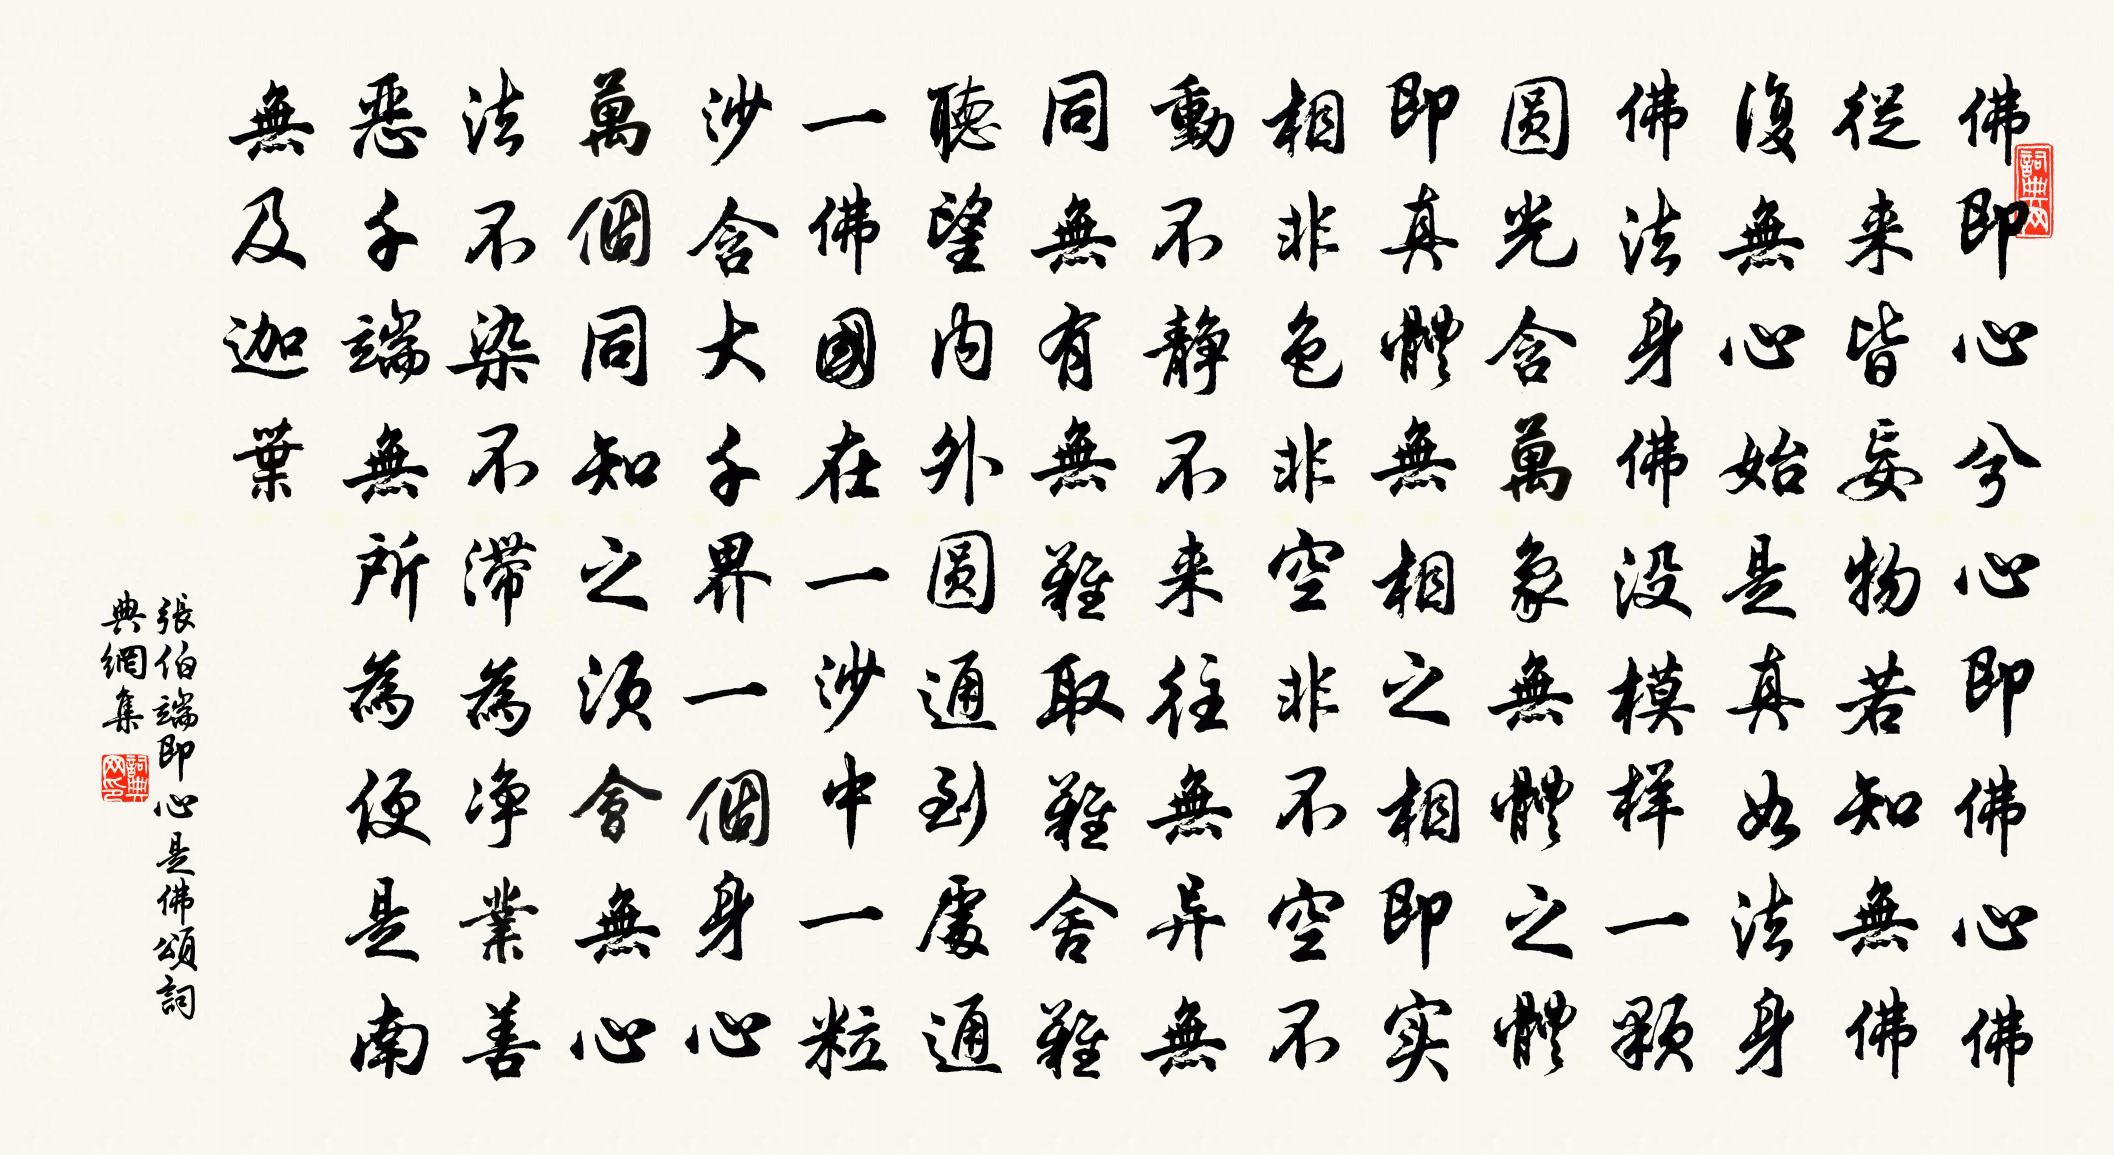 詞典网
佛即心兮心即佛心佛
從来皆妄物若知無佛
復無心始是真如法身
佛法身佛没模样一顆
圆光含萬象無體之體
即真體無相之相即实
相非色非空非不空不
動不静不来往無异無
同無有無難取難舍難
聽望内外圆通到處通
一佛國在一沙中一粒
沙含大千界一個身心
萬個同知之須會無心
法不染不滞為净業善
恶千端無所為便是南
無及迦葉
張伯端即心是佛頌詞
典網集
詞典网印